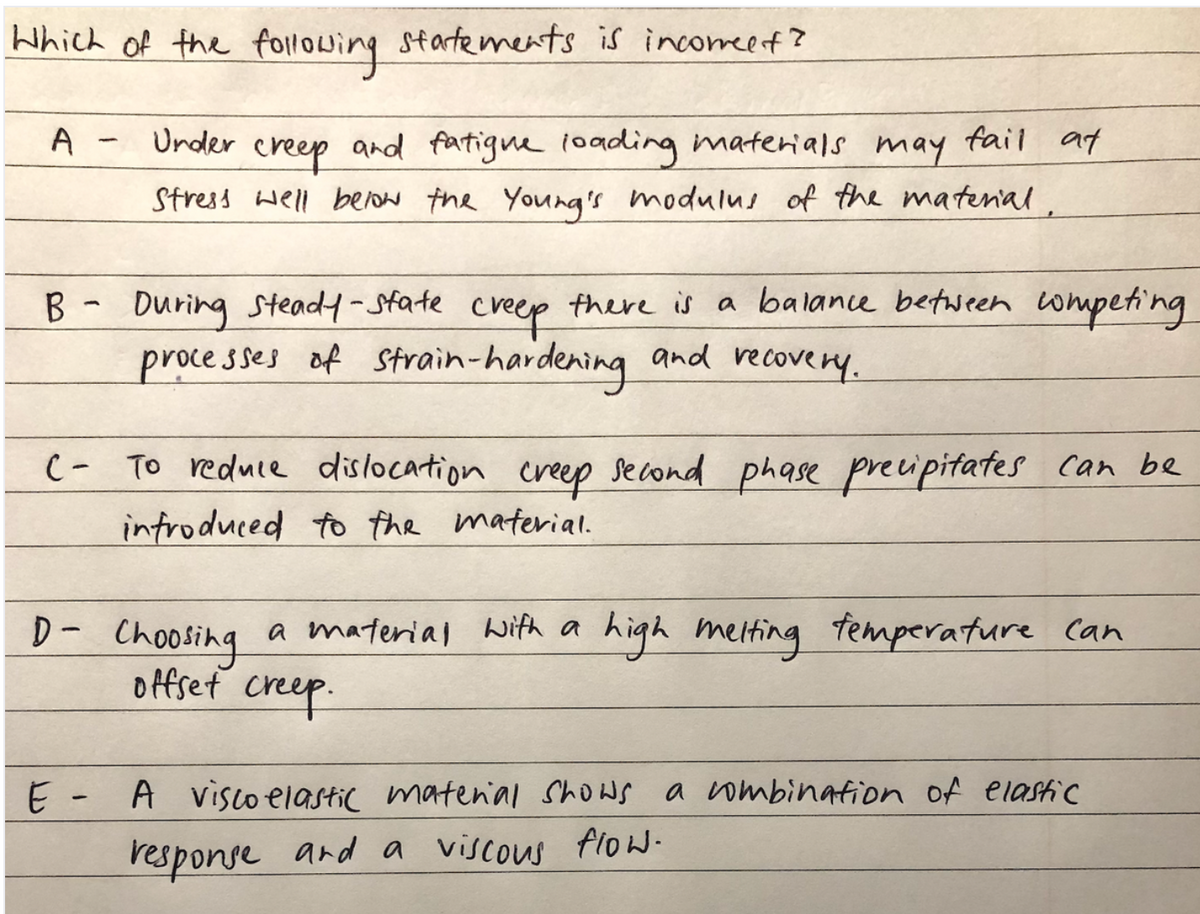 Which of the following statements is incorrect?
A - Under creep and fatigue loading materials may fail at
stress well below the Young's modulus of the material.
B - During steady-state creep there is a balance between competing
processes of strain-hardening and recovery.
C - To reduce dislocation creep second phase precipitates can be
introduced to the material.
D - Choosing a material with a high melting temperature can
offset creep.
E - A viscoelastic material shows a combination of elastic
response and a viscous flow.